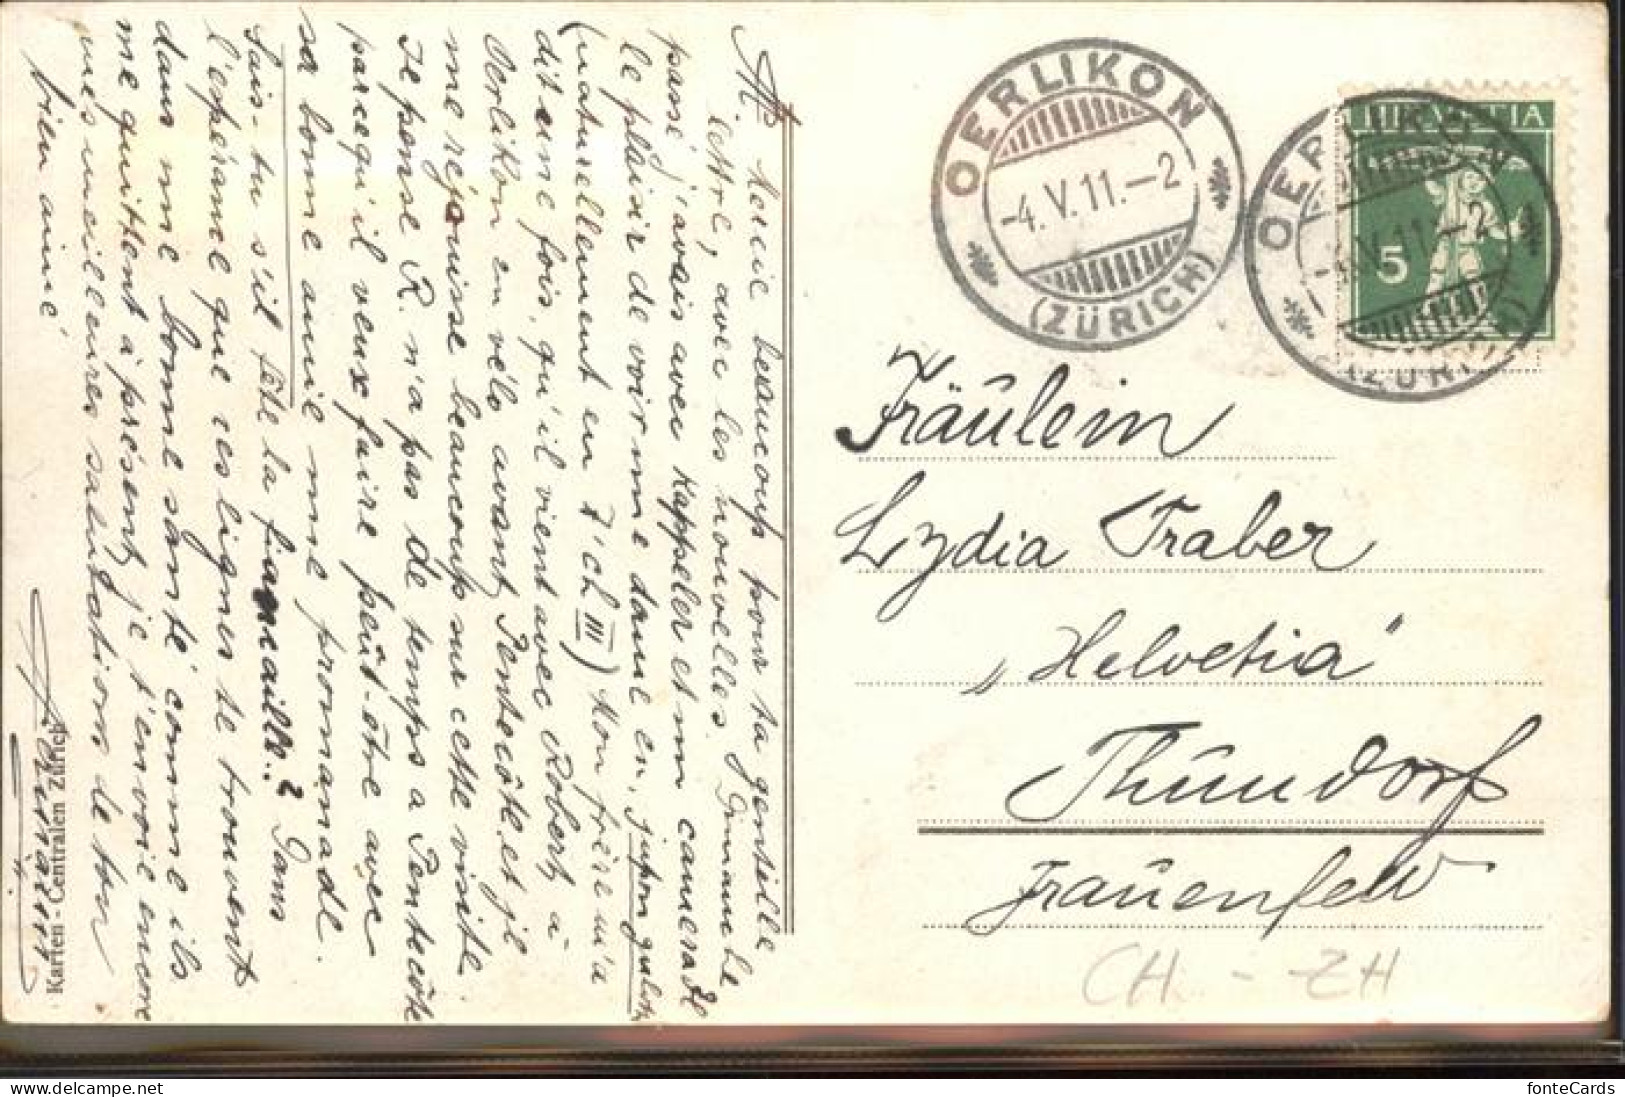 Merci beaucoup pour ta gentille
lettre, avec les nouvelles. Dimanche
passé j'avais avec Kappeler et un camerade
le plaisir de voir une dame en jupon
(naturellement en Mon frère m'a
dit une fois, qu'il vient avec Robert, à
Oerlikon en vélo avant Pentecôte, et j'l
me rejouisse beaucoup sur cette visite.
Je pense R. n'a pas de temps a Pentecôte
parcequ'il veux faire peût-être avec
sa bonne amie une promenade.
Sais-tu s'il fête la fiancaille..? Dans
l'espérance que ces lignes te trouvent
dans une bonne santé comme ils
me quittent à présent, je t'envoie encore
mes meilleures salutations de ton
bien aimé
Karten-Centralen Zürich
OERLIKON
-4.V.11.-2
(ZÜRICH)
HELVETIA
5
OERLIKON
V.11.-2
(ZÜRICH)
Fräulein
Lydia Traber
„Helvetia“
Thundorf
Frauenfeld
CH - ZH
fonteCards